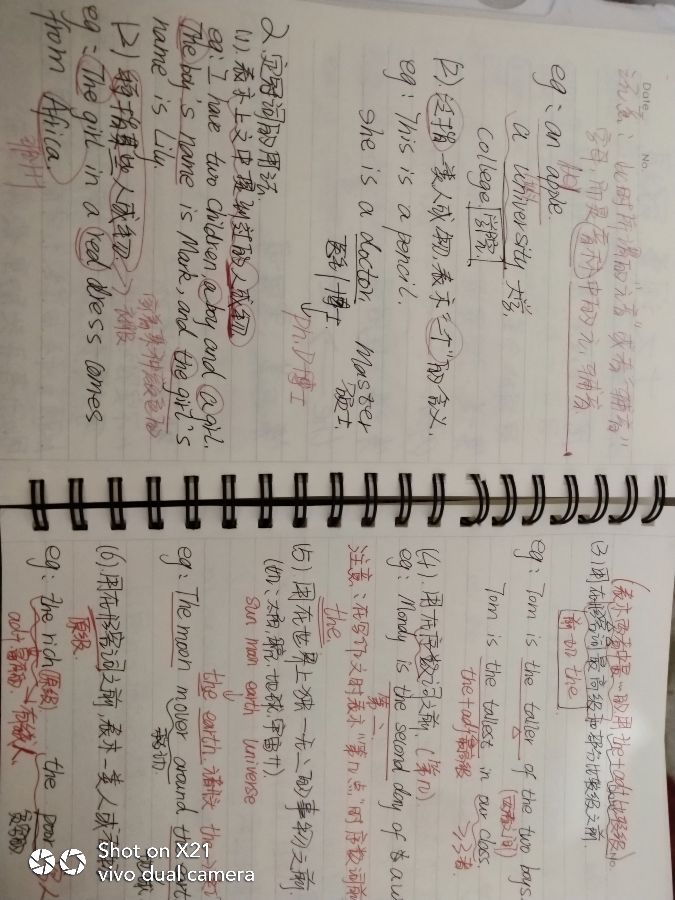 Date. No.
注意：此时所谓的"元音"或者"辅音"
字母，而是音标中的元、辅音
eg：an apple.
a university 大学
college 学院
(2)、泛指一类人或物，表示"一个"的含义.
eg：This is a pencil.
she is a doctor Master
医生/博士 硕士
ph.D 博士
2.定冠词的用法.
(1)、表示上文中提到过的人或物
eg：I have two children, a boy and a girl.
The boy's name is Mark, and the girl's
name is Lily.
(2)特指某些人或物
穿着某种颜色的
衣服
eg：The girl in a red dress comes
from Africa.
非洲
No.
(3)用在形容词最高级和部分比较级之前.
前加the
eg：Tom is the taller of the two boys.
(两者之间)
Tom is the tallest in our class.
the+adj最高级 ≥3者
(4)、用在序数词之前，(第几)
eg：Monday is the second day of a
第二
注意：在写作文时表示"第几点"时序数词前
the
(5)用在世界上独一无二的事物之前.
(如：太阳、月亮、地球、宇宙)
sun moon earth universe
the earth
eg：The moon mover around the
(6)、用在形容词之前，表示一类人或
原级
eg：the rich the poor
原级
有钱人
Shot on X21
vivo dual camera